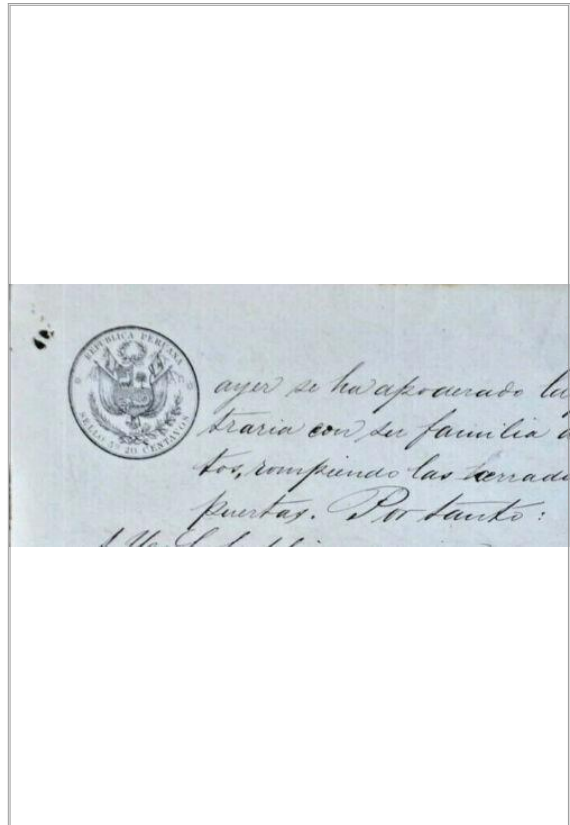 REPUBLICA PERUANA
SELLO 5º 20 CENTAVOS
ayer se ha apoderado la
traria con su familia
tos, rompiendo las
puertas. Por tanto: